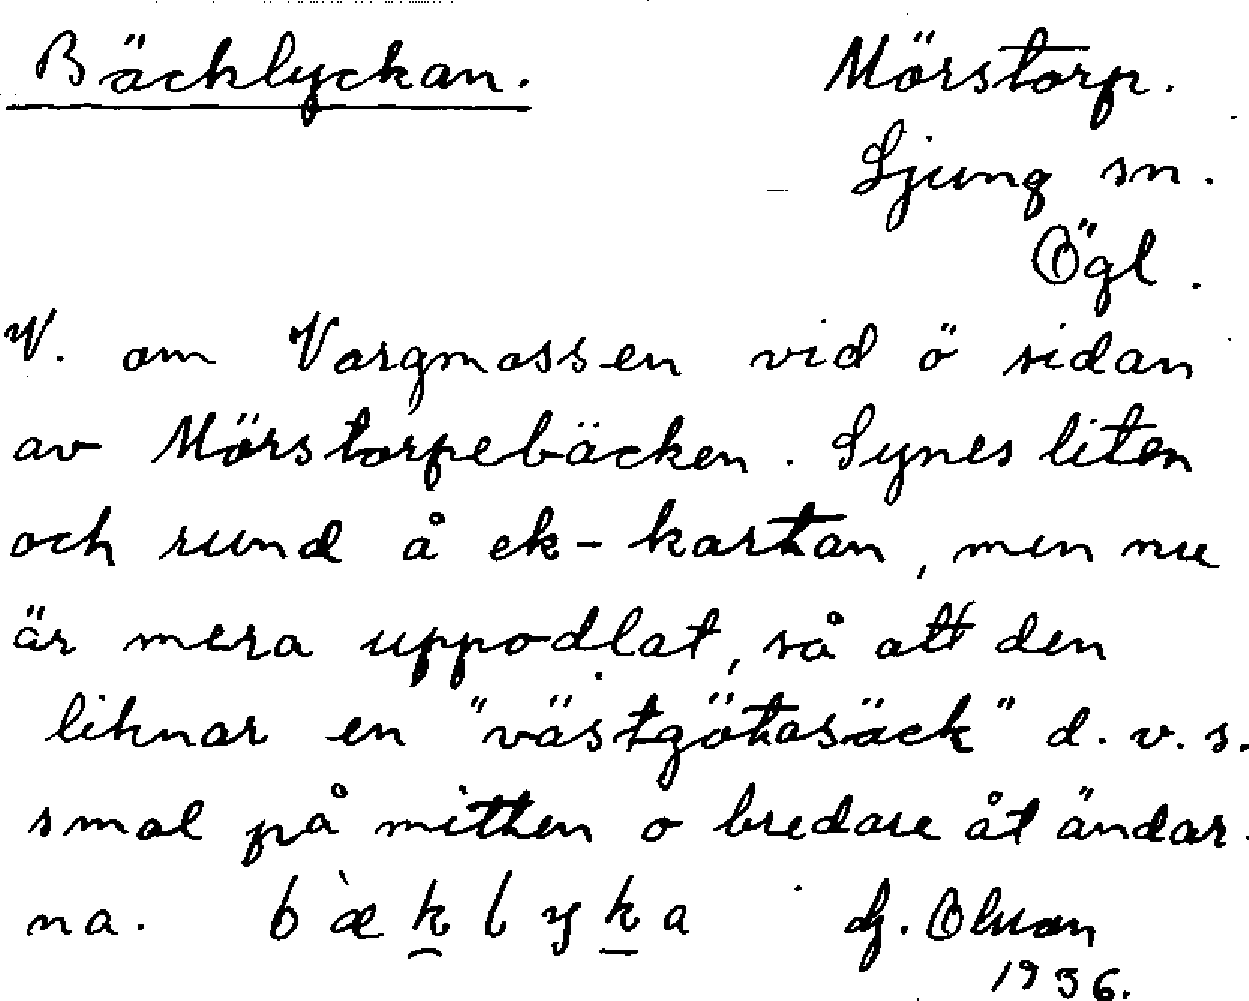 Bäcklyckan. Mörstorp.
Ljung sn.
Ögl.
V. om Vargmossen vid ö sidan
av Mörstorpebäcken. Synes liten
och rund å ek-kartan, men nu
är mera uppodlat, så att den
liknar en "västgötasäck" d.v.s.
smal på mitten o bredare åt ändar-
na. b̀æk̯lyḵa
1936.